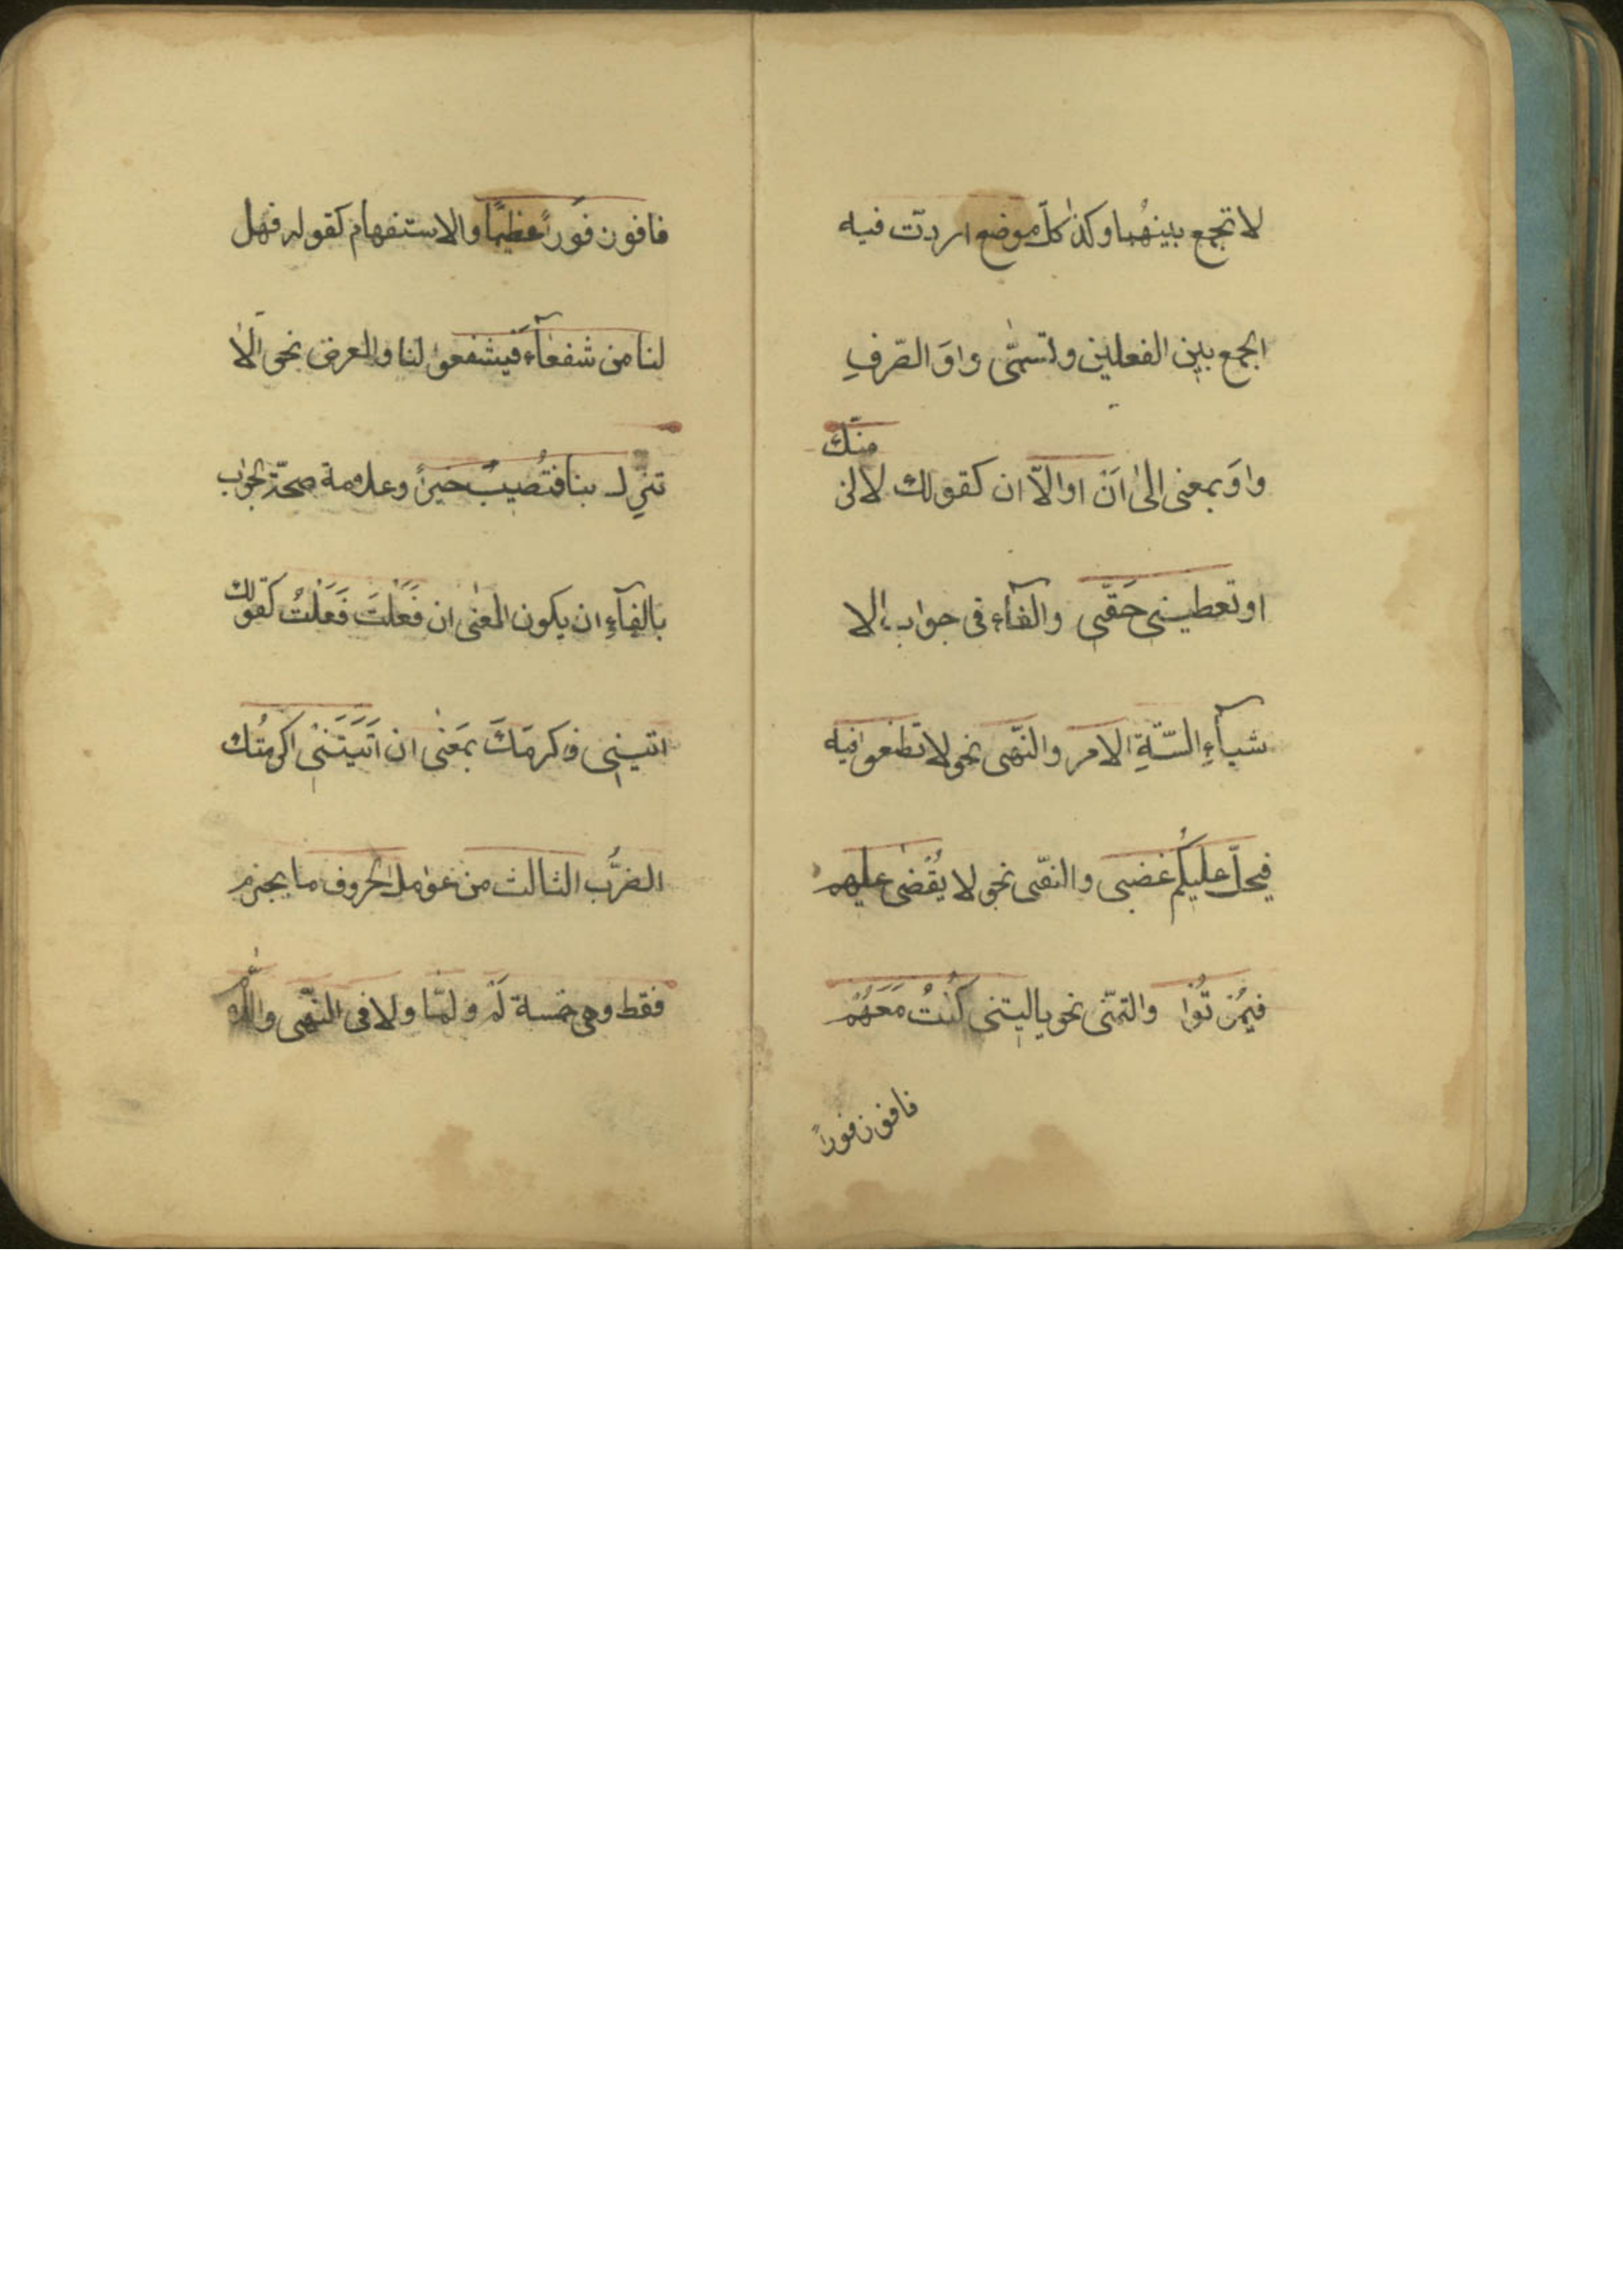 لا تجمع بينهُما وكذا كلّ موضع اردتّ فيه
الجمع بين الفعلين وتسمّى واوَ الصّرفِ
واوَ بمعنى الىٰ اَنْ او الاّ ان كقولك لالز
منّك
او تعطينى حَقّى والفآء فى جواب الا
شيآءِ السّتّةِ الامر والنّهى نحو لا تطغوا فيه
فيحلّ عليكُم غضبى والنفّى نحو لا يُقْضىٰ عليهم
فيمُوتُوا والتمنّى نحو ياليتنى كُنتُ مَعَهُمْ
فافوز فوزاً
فافوز فَوزاً عظيمًا والاستفهام كقوله فهل
لنا من شفعآء فَيشفعوا لنا والعرض نحو اَلاٰ
تنزل بنا فتُصيبُ خيراً وعلامة صحّة الجواب
بالفآءِ ان يكون المعنىٰ ان فَعَلْتَ فَعَلْتُ كقولك
ائتينى فاكرمَكَ بمَعْنىٰ ان اَتَيتَنى اكرمتُك
الضرّب الثالث من عوامل الحروف ما يجزم
فقط وهى خمسة لَمْ ولمّا ولا فى النّهى واللّام